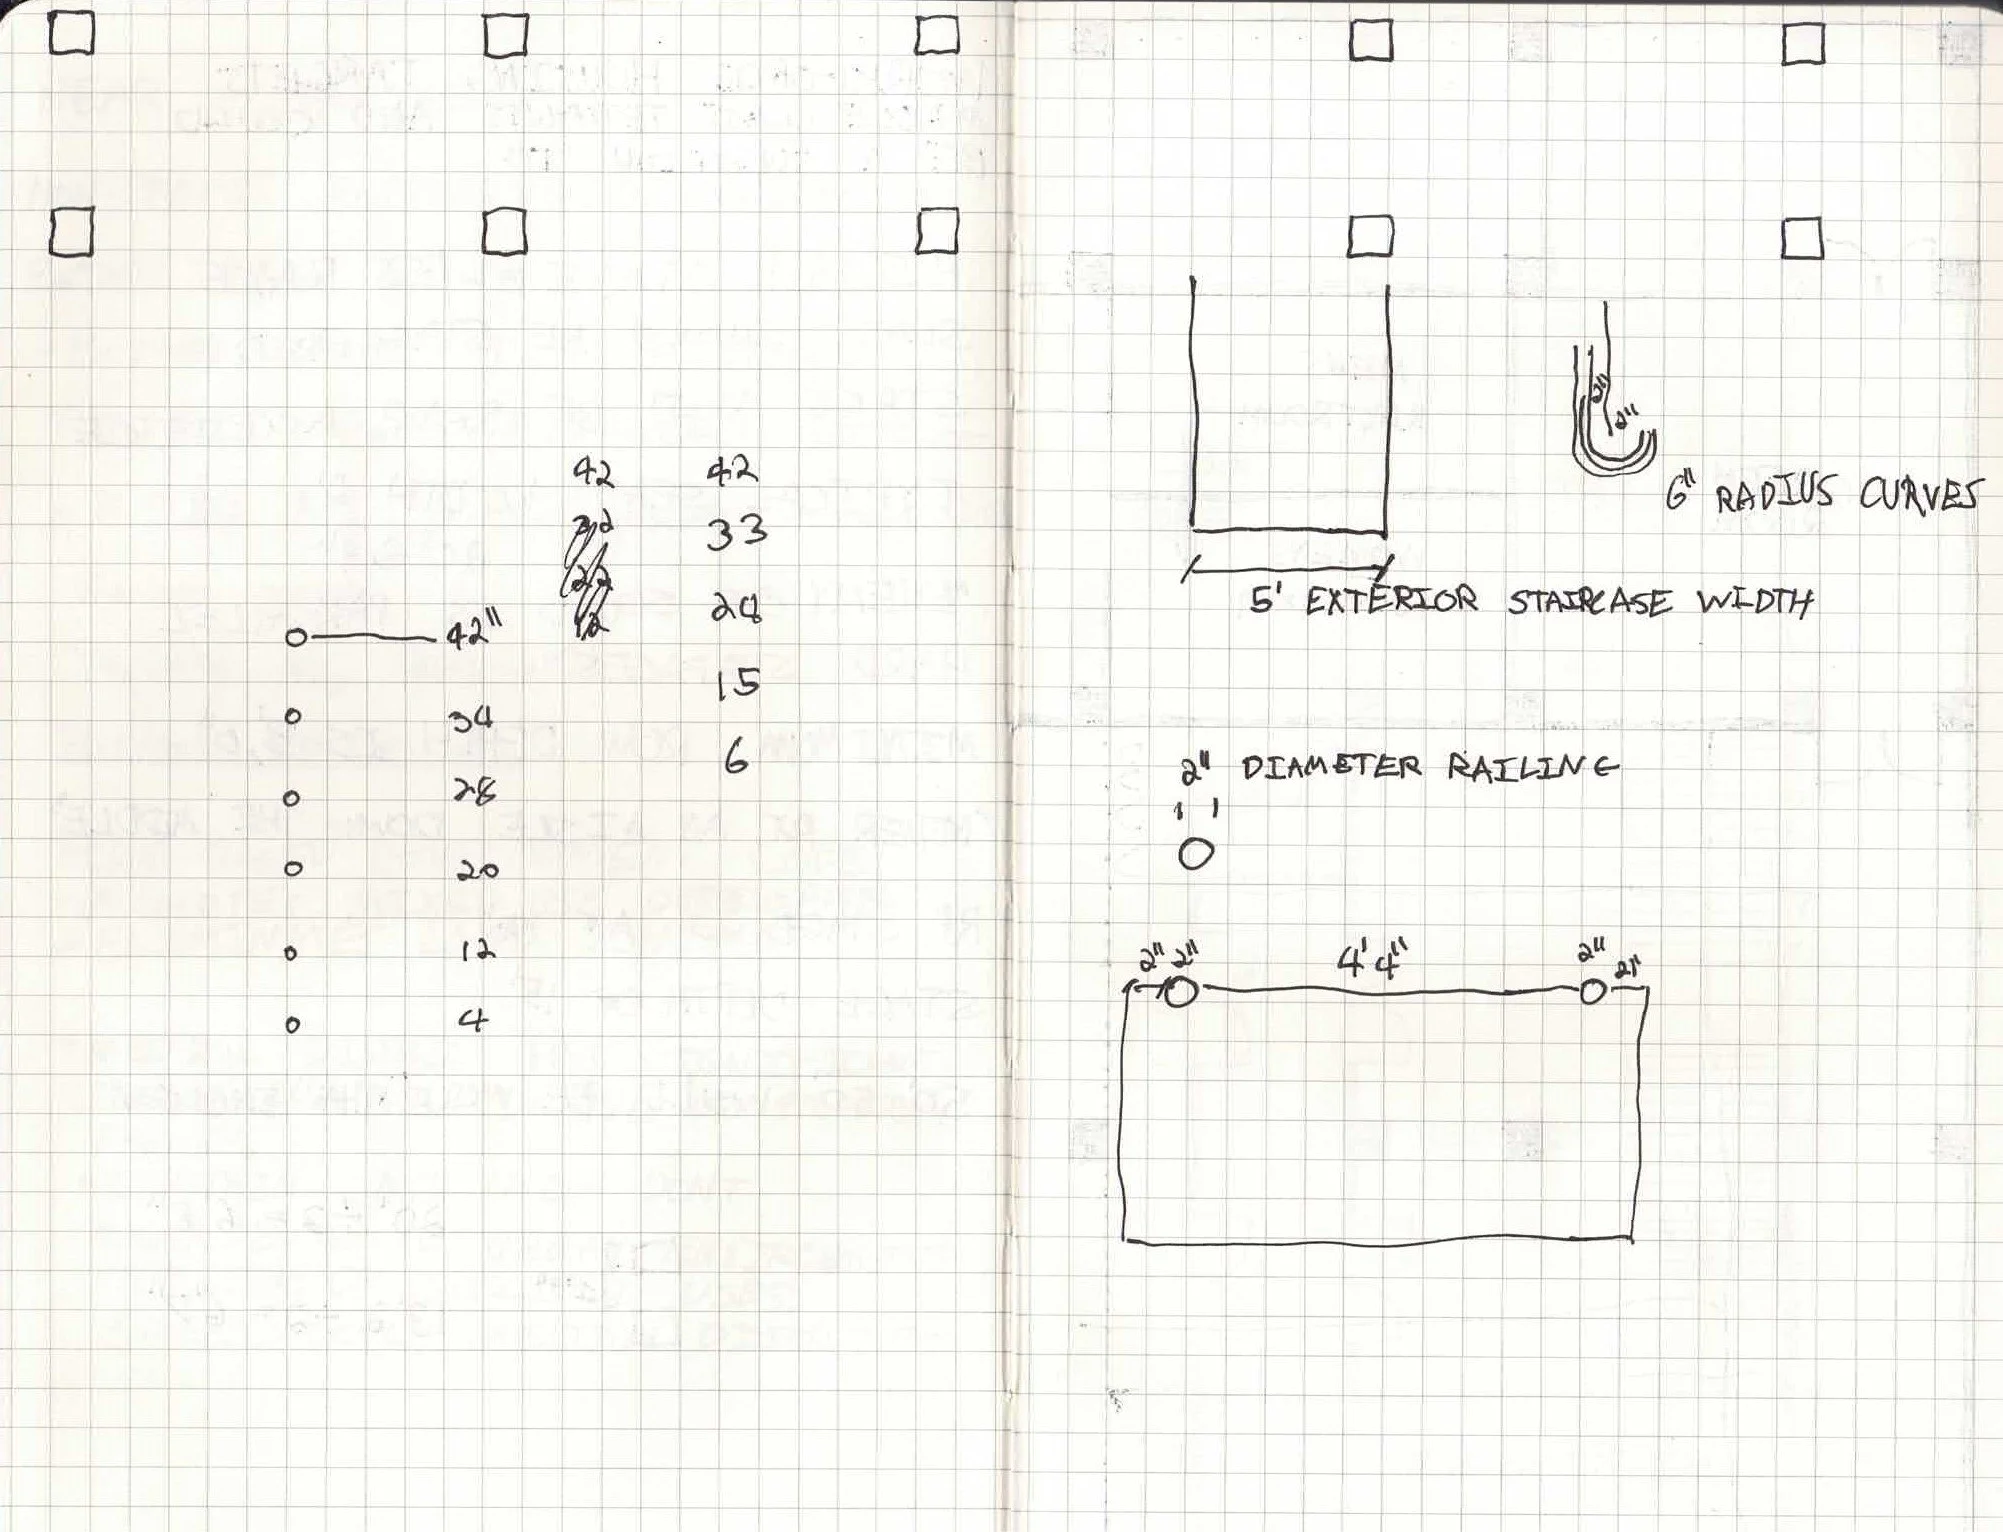 42
42
33
28
15
6
42"
34
28
20
12
4
2"
2"
6" RADIUS CURVES
5' EXTERIOR STAIRCASE WIDTH
2" DIAMETER RAILING
2" 2" 4' 4" 2" 2"